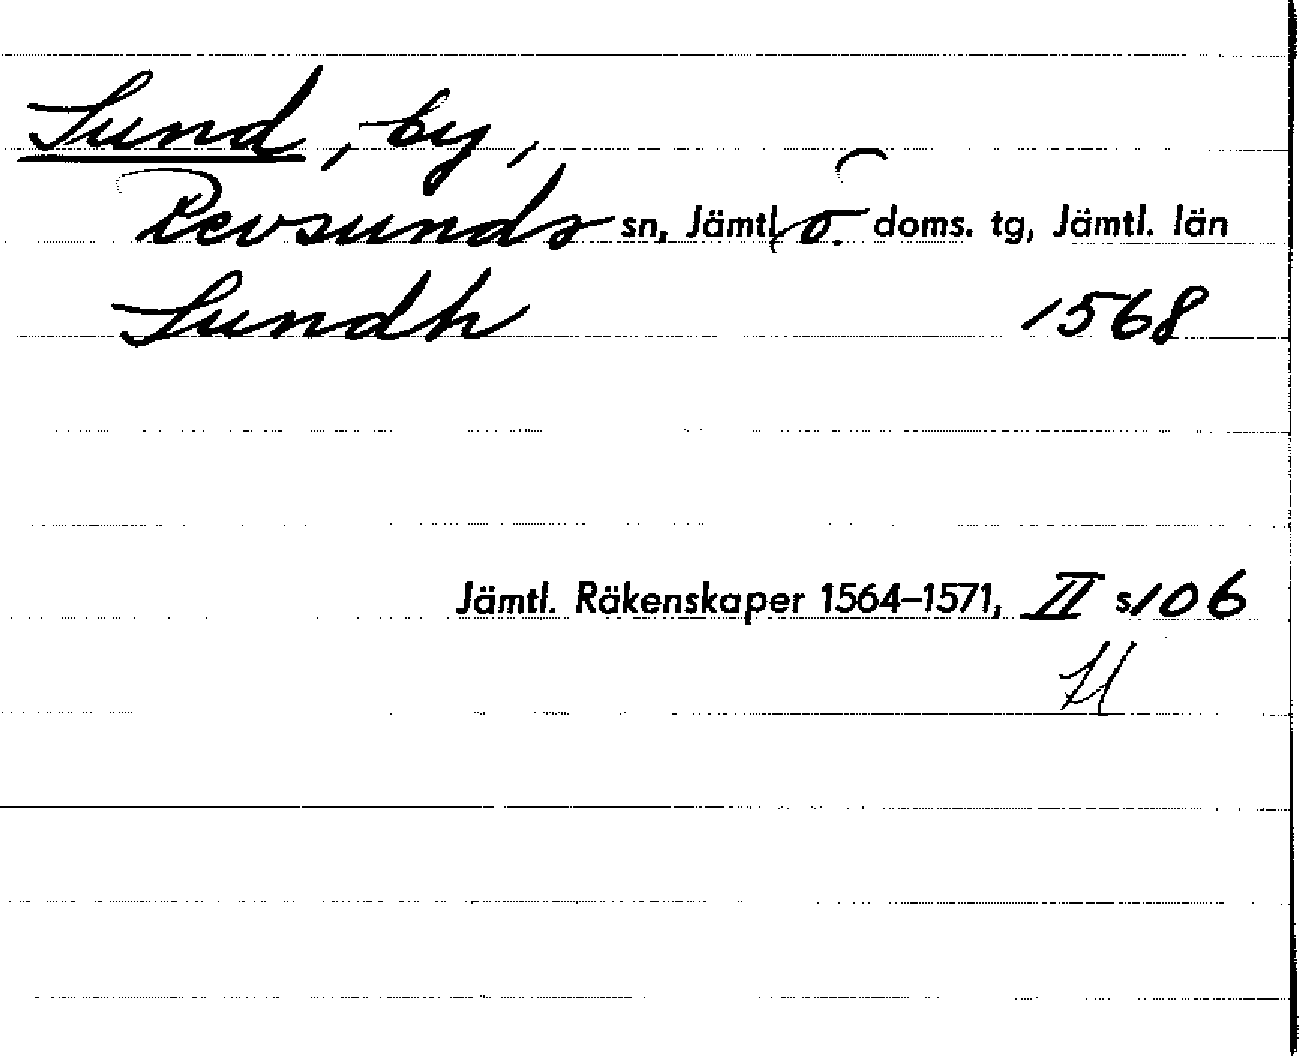 Sund, by,
Revsunds sn, Jämtl. ö. doms. tg, Jämtl. län
Sundh 1568
Jämtl. Räkenskaper 1564–1571, II s 106